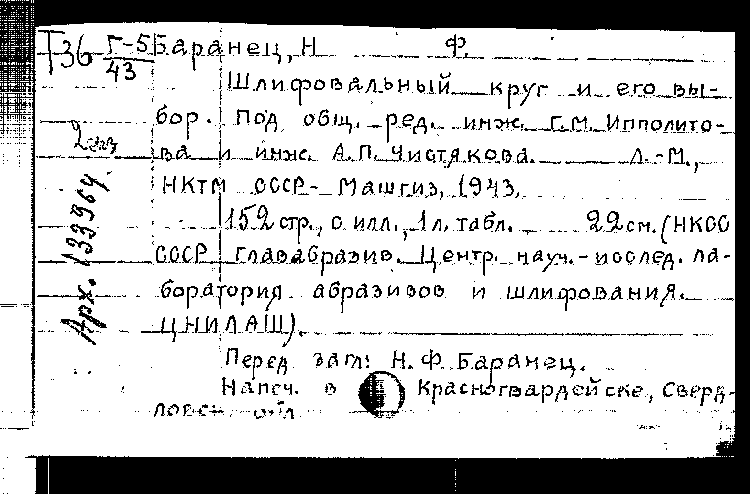 Т36 Г-5 Баранец, Н Ф.
43
Шлифовальный круг и его вы-
бор. Под общ. ред. инж. Г.М. Ипполито-
ва и инж. А.П. Чистякова. Л.-М.,
НКТМ СССР - Машгиз, 1943.
152 стр., с илл., 1 л. табл. 22 см. (НКСС
СССР Главабразив. Центр. науч.-исслед. ла-
боратория абразивов и шлифования.
ЦНИЛАШ).
Перед загл: Н. Ф. Баранец.
Напеч. в Красногвардейске, Сверд-
ловск. обл.
2 экз
Арх. 133964.